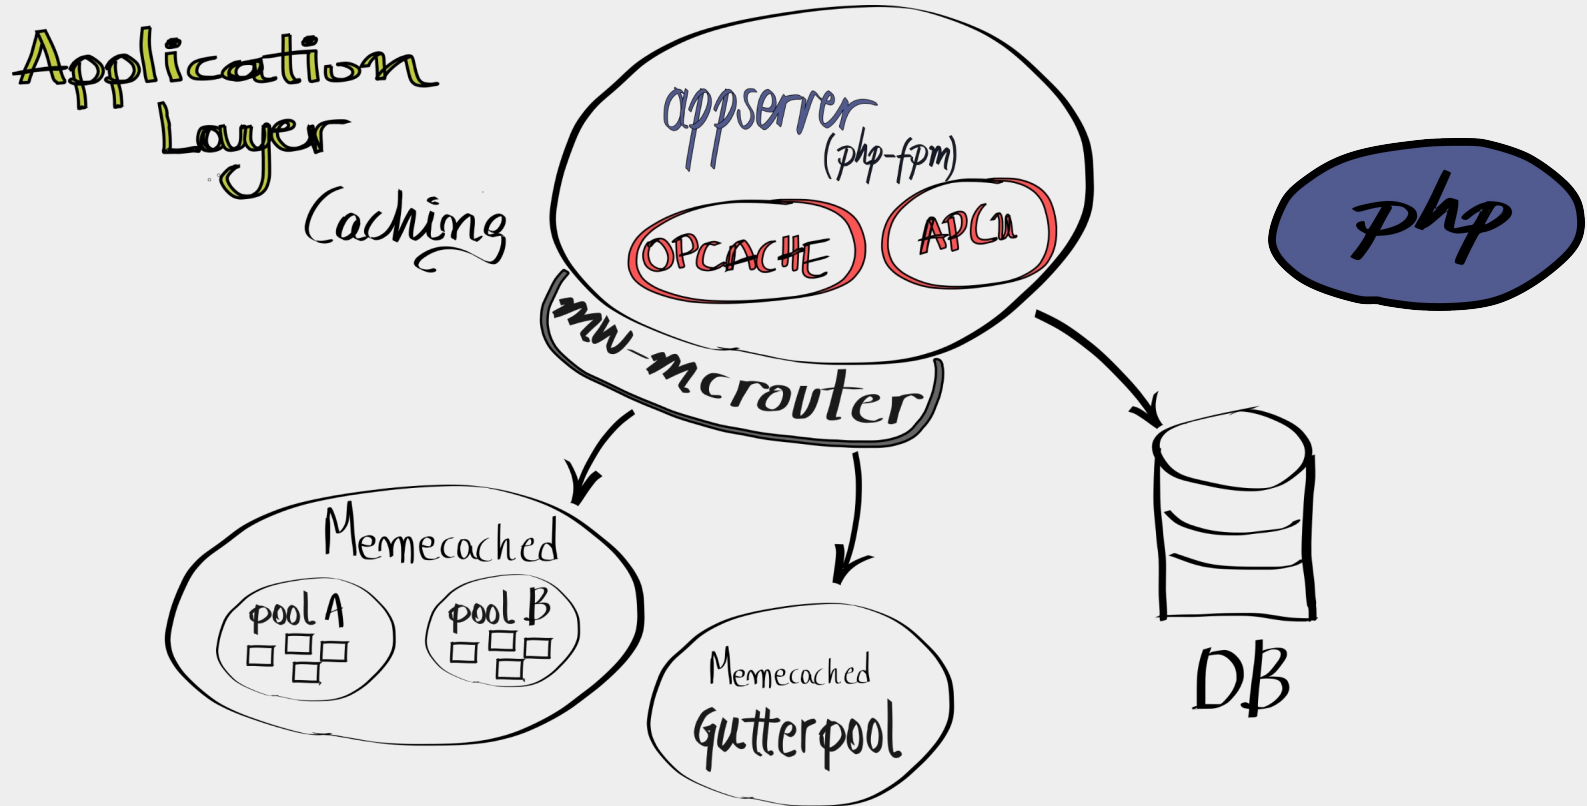 Application
Layer
Caching
appserver
(php-fpm)
OPCACHE
APCu
mw-mcrouter
php
Memecached
pool A
pool B
Memecached
Gutterpool
DB